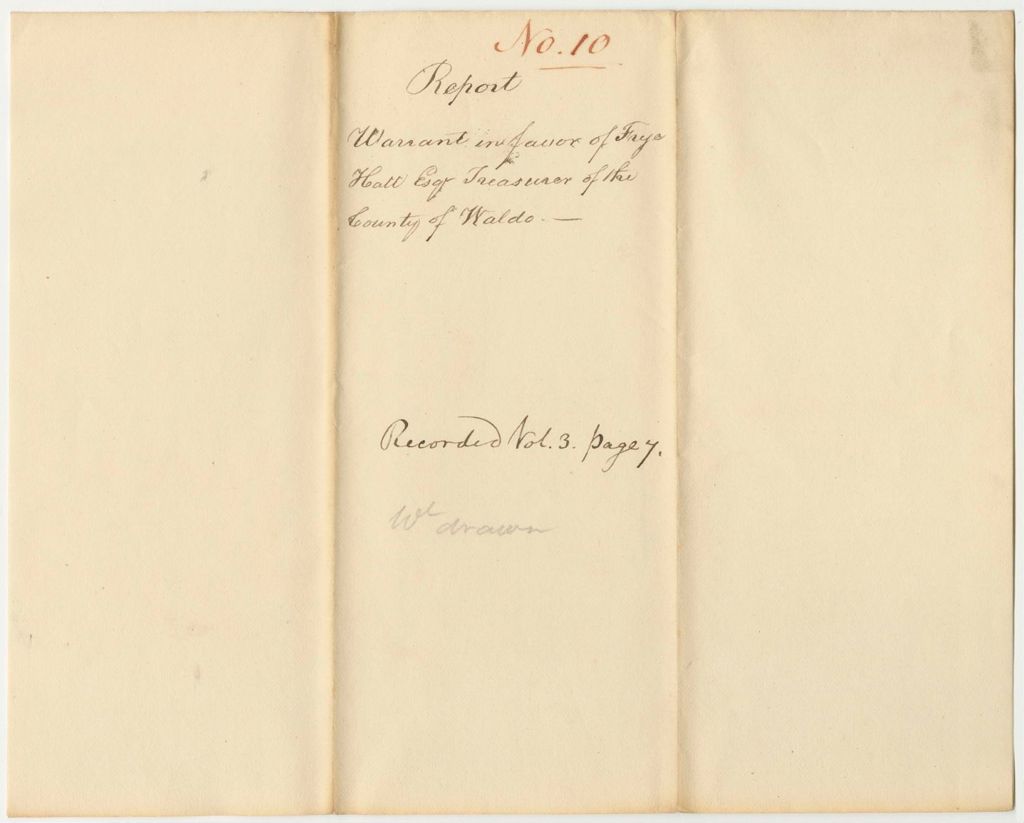 No. 10
Report
Warrant in favor of Frye
Hall Esqr Treasurer of the
County of Waldo. —
Recorded Vol. 3. page 7.
Wt drawn